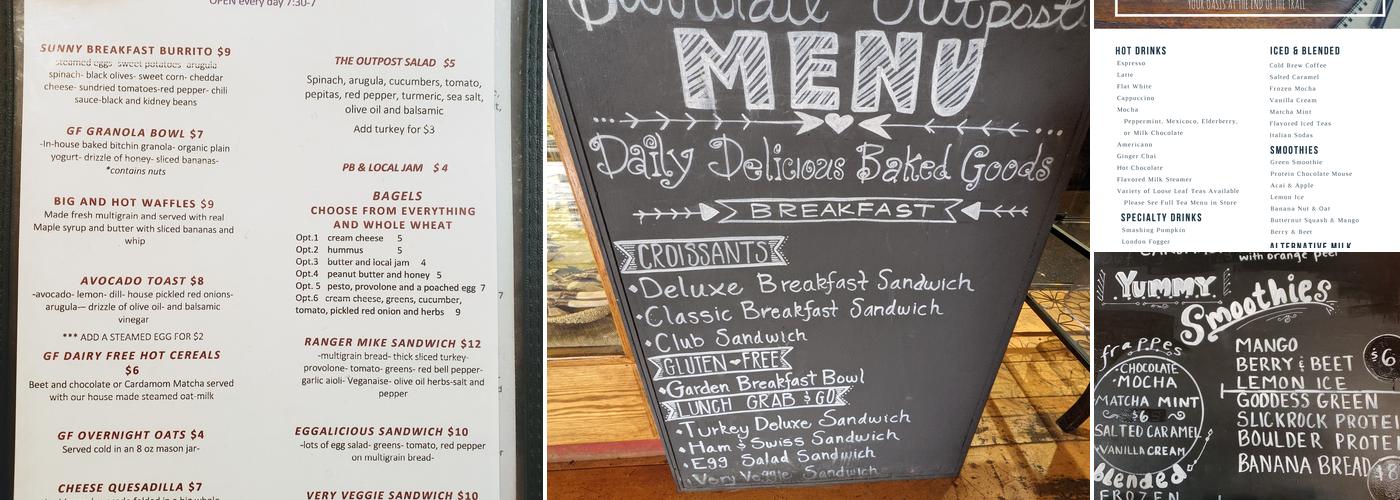 OPEN every day 7:30-7
SUNNY BREAKFAST BURRITO $9
steamed eggs- sweet potatoes- arugula
spinach- black olives- sweet corn- cheddar
cheese- sundried tomatoes-red pepper- chili
sauce-black and kidney beans
GF GRANOLA BOWL $7
-In-house baked bitchin granola- organic plain
yogurt- drizzle of honey- sliced bananas-
*contains nuts
BIG AND HOT WAFFLES $9
Made fresh multigrain and served with real
Maple syrup and butter with sliced bananas and
whip
AVOCADO TOAST $8
-avocado- lemon- dill- house pickled red onions-
arugula— drizzle of olive oil- and balsamic
vinegar
*** ADD A STEAMED EGG FOR $2
GF DAIRY FREE HOT CEREALS
$6
Beet and chocolate or Cardamom Matcha served
with our house made steamed oat-milk
GF OVERNIGHT OATS $4
Served cold in an 8 oz mason jar-
CHEESE QUESADILLA $7
THE OUTPOST SALAD $5
Spinach, arugula, cucumbers, tomato,
pepitas, red pepper, turmeric, sea salt,
olive oil and balsamic
Add turkey for $3
PB & LOCAL JAM $ 4
BAGELS
CHOOSE FROM EVERYTHING
AND WHOLE WHEAT
Opt.1 cream cheese 5
Opt.2 hummus 5
Opt.3 butter and local jam 4
Opt.4 peanut butter and honey 5
Opt. 5 pesto, provolone and a poached egg 7
Opt.6 cream cheese, greens, cucumber,
tomato, pickled red onion and herbs 9
RANGER MIKE SANDWICH $12
-multigrain bread- thick sliced turkey-
provolone- tomato- greens- red bell pepper-
garlic aioli- Veganaise- olive oil herbs-salt and
pepper
EGGALICIOUS SANDWICH $10
-lots of egg salad- greens- tomato, red pepper
on multigrain bread-
VERY VEGGIE SANDWICH $10
Outpost
MENU
Daily Delicious Baked Goods
BREAKFAST
CROISSANTS
•Deluxe Breakfast Sandwich
•Classic Breakfast Sandwich
•Club Sandwich
GLUTEN-FREE
•Garden Breakfast Bowl
LUNCH GRAB & GO
•Turkey Deluxe Sandwich
•Ham & Swiss Sandwich
•Egg Salad Sandwich
•Very Veggie Sandwich
YOUR OASIS AT THE END OF THE TRAIL
HOT DRINKS
Espresso
Latte
Flat White
Cappuccino
Mocha
Peppermint, Mexicoco, Elderberry,
or Milk Chocolate
Americano
Ginger Chai
Hot Chocolate
Flavored Milk Steamer
Variety of Loose Leaf Teas Available
Please See Full Tea Menu in Store
SPECIALTY DRINKS
Smashing Pumpkin
London Fogger
ICED & BLENDED
Cold Brew Coffee
Salted Caramel
Frozen Mocha
Vanilla Cream
Matcha Mint
Flavored Iced Teas
Italian Sodas
SMOOTHIES
Green Smoothie
Protein Chocolate Mouse
Acai & Apple
Lemon Ice
Banana Nut & Oat
Butternut Squash & Mango
Berry & Beet
ALTERNATIVE MILK
with orange peel
YUMMY
Smoothies
frappes
•CHOCOLATE
•MOCHA
MATCHA MINT
$6
SALTED CARAMEL
VANILLA CREAM
blended
FROZEN
MANGO
BERRY & BEET
LEMON ICE
GODDESS GREEN
SLICKROCK PROTEI
BOULDER PROTEI
BANANA BREAD
$6
$8